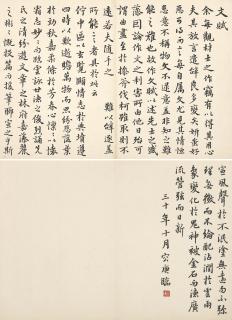 文賦
余每觀材士之作竊有以得其用心
夫其放言遣辭良多變矣妍蚩好
惡可得而言每自屬文尤見其情恒
患意不稱物文不逮意蓋非知之難
能之難也故作文賦以述先士之盛
藻因論作文之利害所由他日殆可
謂曲盡其妙至於操斧伐柯雖取則不
遠若夫隨手之變良難以辭逐蓋
所能言者具於此云
佇中區以玄覽頤情志於典墳遵
四時以歎逝瞻萬物而思紛悲落葉
於勁秋喜柔條於芳春心懍懍以懷
霜志眇眇而臨雲詠世德之駿烈誦先
民之清芬遊文章之林府嘉麗藻
之彬彬慨投篇而援筆聊宣之乎斯
宣風聲於不泯塗無遠而不弥
綸每微而不綸配沾潤於雲雨
象變化於鬼神被金石而德廣
流管弦而日新
三十年十月 臨